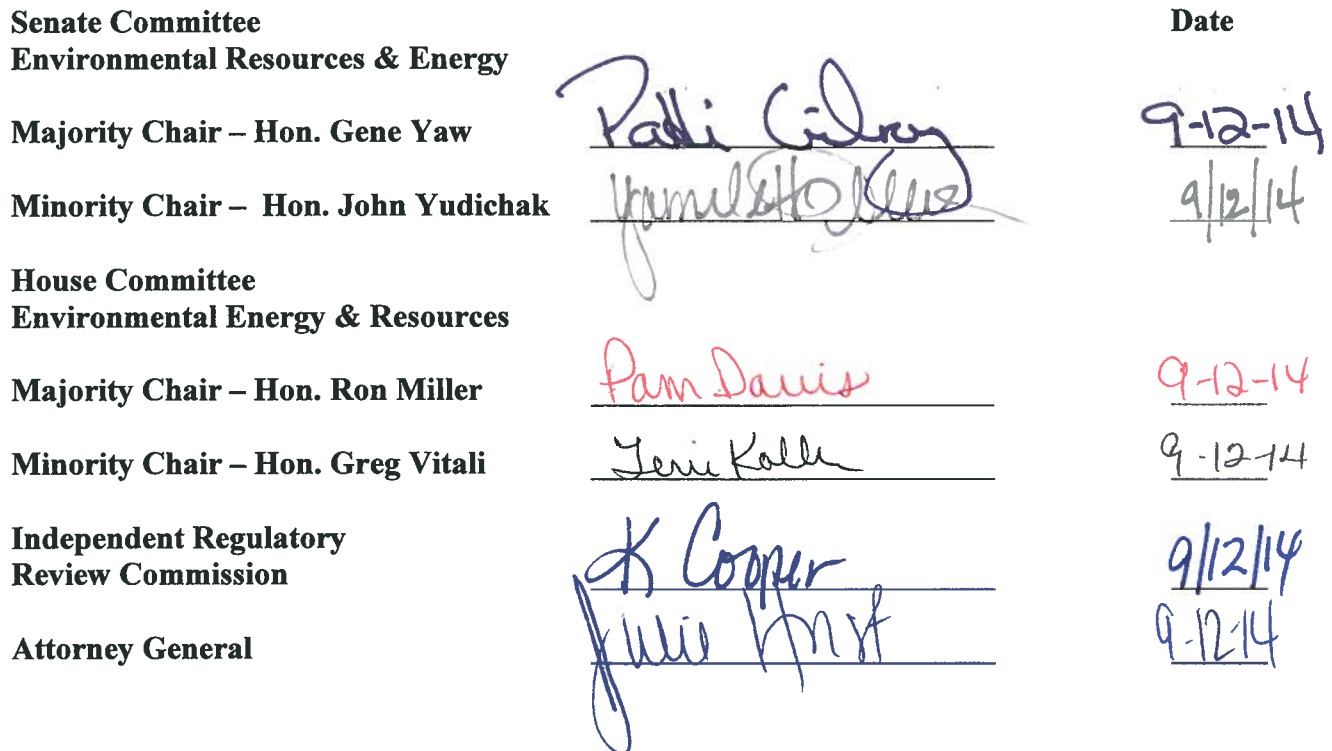 Senate Committee Date
Environmental Resources & Energy
Majority Chair – Hon. Gene Yaw Patti Gilroy 9-12-14
Minority Chair – Hon. John Yudichak 9/12/14
House Committee
Environmental Energy & Resources
Majority Chair – Hon. Ron Miller Pam Davis 9-12-14
Minority Chair – Hon. Greg Vitali Terri 9-12-14
Independent Regulatory
Review Commission K Cooper 9/12/14
Attorney General Julie 9-12-14